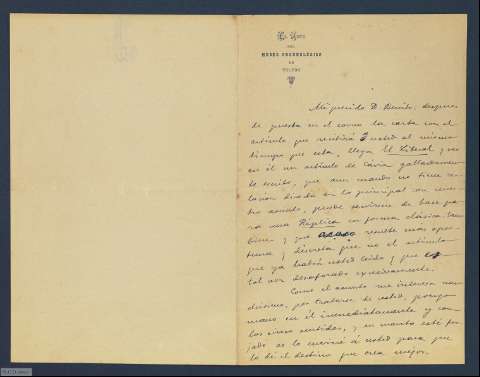 El Jefe
DEL
MUSEO ARQUEOLÓGICO
DE
TOLEDO
Mi querido D. Benito: despues
de puesta en el correo la carta con el
artículo que recibirá usted al mismo
tiempo que esta, llega El Liberal y veo
en él un artículo de Cavia gallardamen
te escrito, que aun cuando no tiene re-
lacion directa en lo principal con nues-
tro asunto, puede servirme de base pa-
ra una Réplica en forma clásica tam
bien y que acaso resulte mas opor-
tuna y discreta que no el artículo
que ya habrá usted leido y que
tal vez desaforado excesivamente.
Como el asunto me interesa mu
chísimo, por tratarse de usted, pongo
mano en él inmediatamente y con
los cinco sentidos, y en cuanto esté for
jado se lo enviaré á usted para que
le dé el destino que crea mejor.